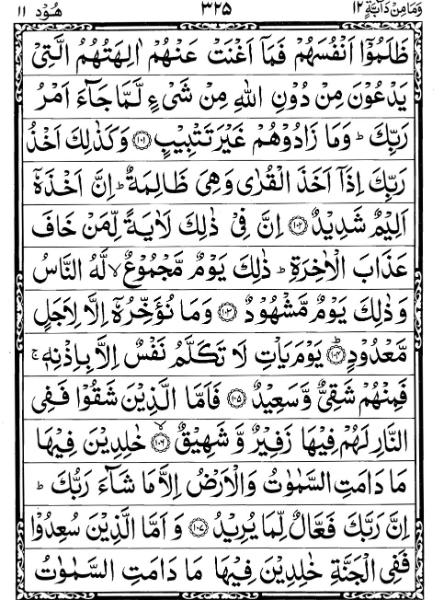 وَمَا مِنْ دَآبَّةٍ ١٢ ٣٢٥ هُوْد ١١
ظَلَمُوْۤا اَنْفُسَهُمْ فَمَاۤ اَغْنَتْ عَنْهُمْ اٰلِهَتُهُمُ الَّتِیْ
یَدْعُوْنَ مِنْ دُوْنِ اللهِ مِنْ شَیْءٍ لَّمَّا جَآءَ اَمْرُ
رَبِّكَ ؕ وَمَا زَادُوْهُمْ غَیْرَ تَتْبِیْبٍ ﴿۱۰۱﴾ وَكَذٰلِكَ اَخْذُ
رَبِّكَ اِذَاۤ اَخَذَ الْقُرٰی وَهِیَ ظَالِمَةٌ ؕ اِنَّ اَخْذَهٗۤ
اَلِیْمٌ شَدِیْدٌ ﴿۱۰۲﴾ اِنَّ فِیْ ذٰلِكَ لَاٰیَةً لِّمَنْ خَافَ
عَذَابَ الْاٰخِرَةِ ؕ ذٰلِكَ یَوْمٌ مَّجْمُوْعٌ ۙ لَّهُ النَّاسُ
وَذٰلِكَ یَوْمٌ مَّشْهُوْدٌ ﴿۱۰۳﴾ وَمَا نُؤَخِّرُهٗۤ اِلَّا لِاَجَلٍ
مَّعْدُوْدٍ ﴿۱۰۴﴾ؕ یَوْمَ یَاْتِ لَا تَكَلَّمُ نَفْسٌ اِلَّا بِاِذْنِهٖ ۚ
فَمِنْهُمْ شَقِیٌّ وَّسَعِیْدٌ ﴿۱۰۵﴾ فَاَمَّا الَّذِیْنَ شَقُوْا فَفِی
النَّارِ لَهُمْ فِیْهَا زَفِیْرٌ وَّ شَهِیْقٌ ﴿۱۰۶﴾ۙ خٰلِدِیْنَ فِیْهَا
مَا دَامَتِ السَّمٰوٰتُ وَالْاَرْضُ اِلَّا مَا شَآءَ رَبُّكَ ؕ
اِنَّ رَبَّكَ فَعَّالٌ لِّمَا یُرِیْدُ ﴿۱۰۷﴾ وَ اَمَّا الَّذِیْنَ سُعِدُوْا
فَفِی الْجَنَّةِ خٰلِدِیْنَ فِیْهَا مَا دَامَتِ السَّمٰوٰتُ